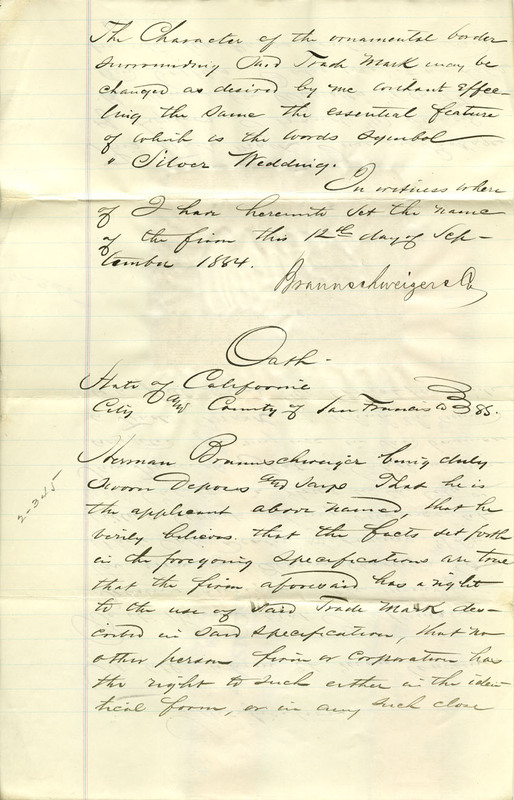 The Character of the ornamental border
surrounding Said Trade Mark may be
changed as desired by me without effec-
ting the same the essential feature
of which is the words symbol
" Silver Wedding.
In witness where
of I have hereunto set the name
of the firm this 12th day of Sep-
tember 1884.
Braunschweiger & Co
Oath -
State of California
City and County of San Francisco } ss.
2-345
Herman Braunschweiger being duly
sworn Deposes and Says That he is
the applicant above named, that he
verily believes that the facts set forth
in the foregoing specifications are true
that the firm aforesaid has a right
to the use of Said Trade Mark des-
cribed in said specification, that no
other person firm or corporation has
the right to such either in the iden-
tical form, or in any such close